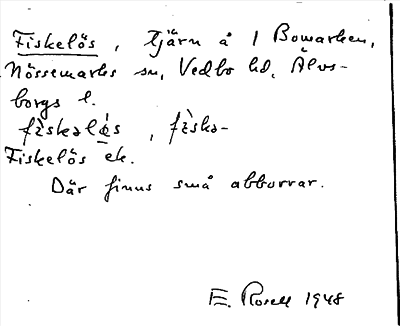 Fiskelös, tjärn å 1 Bowarken,
Nössemarks sn, Vedbo hd, Älvs-
borgs l.
fìskəlǿs, fìskə-
Fiskelös ek.
Där finns små abborrar.
E. Rosell 1948